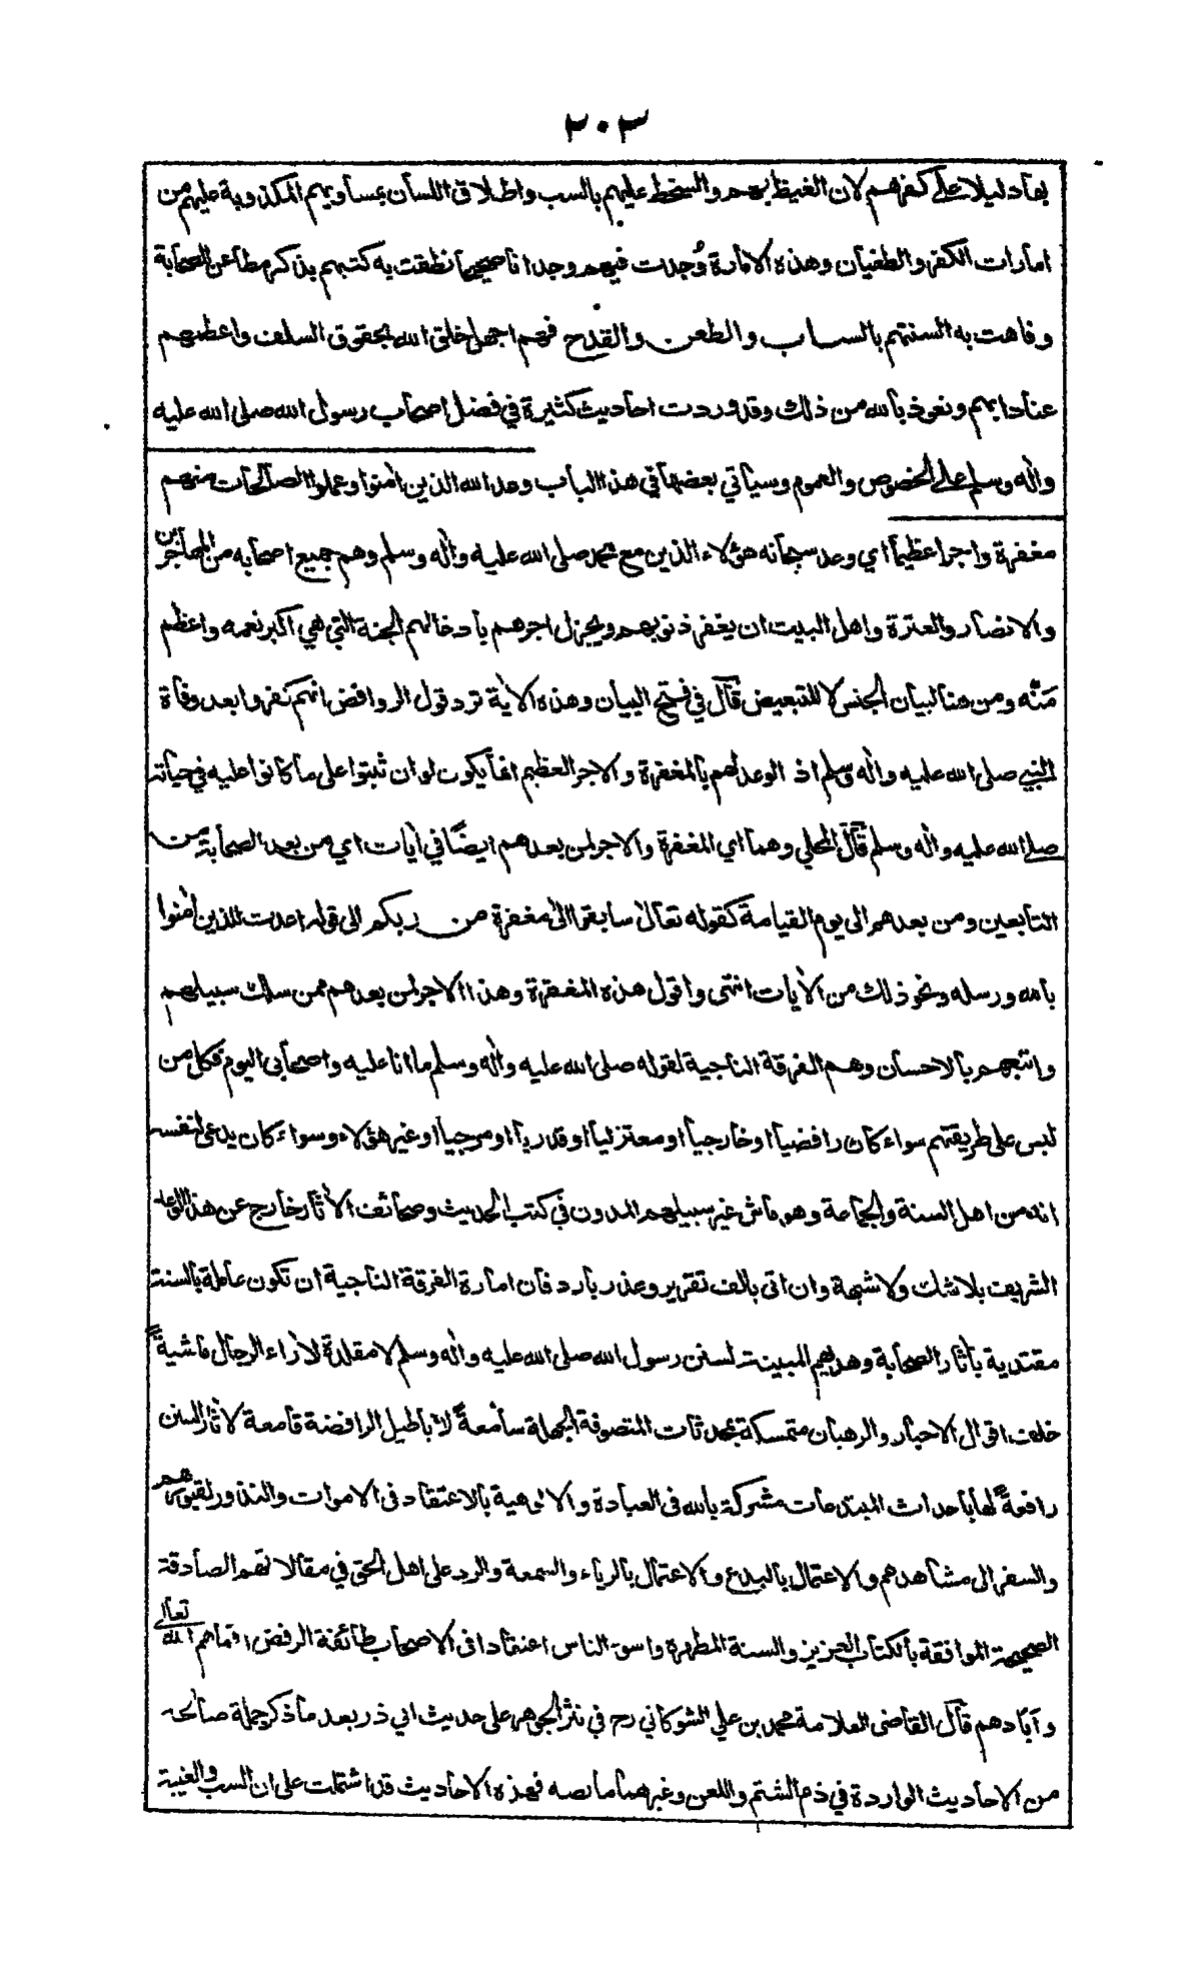 ٢٠٣
بها دليلا على كفرهم لان الغيظ بهم والسخط عليهم بالسب واطلاق اللسان بمساويهم المكذوبة عليهم من
امارات الكفر والطغيان وهذه الامارة وُجدت فيهم وجدانا صحيحا نطقت به كتبهم بذكر مطاعن الصحابة
وفاهت به السنتهم بالسباب والطعن والقدح فهم اجهل خلق الله بحقوق السلف واعظمهم
عنادا بهم ونعوذ بالله من ذلك وقد وردت احاديث كثيرة في فضل اصحاب رسول الله صلى الله عليه
واٰله وسلم على الخصوص والعموم وسيأتي بعضها في هذا الباب وعد الله الذين اٰمنوا وعملوا الصالحات منهم
مغفرة واجرا عظيما اي وعد سبحانه هؤلاء الذين مع محمد صلى الله عليه واٰله وسلم وهم جميع اصحابه من المهاجرين
والانصار والعترة واهل البيت ان يغفر ذنوبهم ويجزل اجرهم بادخالهم الجنة التي هي اكبر نعمه واعظم
مَنّه ومن هنا لبيان الجنس لا للتبعيض قال في فتح البيان وهذه الاٰية ترد قول الروافض انهم كفروا بعد وفاة
النبي صلى الله عليه واٰله وسلم اذ الوعد لهم بالمغفرة والاجر العظيم انما يكون لو ان ثبتوا على ما كانوا عليه في حياته
صلى الله عليه واٰله وسلم قال المحلي وهما اي المغفرة والاجر لمن بعدهم ايضًا في اٰيات اي من بعد الصحابة من
التابعين ومن بعدهم الى يوم القيامة كقوله تعالى سابقوا الى مغفرة من ربكم الى قوله اعدت للذين اٰمنوا
بالله ورسله ونحو ذلك من الاٰيات انتهى واقول هذه المغفرة وهذا الاجر لمن بعدهم ممن سلك سبيلهم
واتبعهم بالاحسان وهم الفرقة الناجية لقوله صلى الله عليه واٰله وسلم ما انا عليه واصحابى اليوم فكل من
ليس على طريقتهم سواء كان رافضيا او خارجيا او معتزليا او قدريا او مرجيا او غير هؤلاء وسواء كان يدعى لنفسه
انه من اهل السنة والجماعة وهو ماش غير سبيلهم المدون في كتب الحديث وصحائف الاٰثار خارج عن هذا الوعد
الشريف بلا شك ولا شبهة وان اتى بالف تقرير وعذر بارد فان امارة الفرقة الناجية ان تكون عاملة بالسنة
مقتدية باٰثار الصحابة وهديهم المبينة لسنن رسول الله صلى الله عليه واٰله وسلم لا مقلدة لاٰراء الرجال ماشيةً
خلف اقوال الاحبار والرهبان متمسكة بمحدثات المتصوفة الجهلة سامعةً لاباطيل الرافضة قامعة لاٰثار السنن
رافعةً لها باحداث المبتدعات مشركة بالله فى العبادة والالوهية بالاعتقاد فى الاموات والنذور لقبورهم
والسفر الى مشاهدهم والاعتمال بالبدع والاعتمال بالرياء والسمعة والرد على اهل الحق في مقالاتهم الصادقة
الصحيحة الموافقة بالكتاب العزيز والسنة المطهرة واسوء الناس اعتقادا فى الاصحاب طائفة الرفض اقماهم الله تعالى
وأبادهم قال القاضى العلامة محمد بن علي الشوكاني رح في نثر الجوهر على حديث ابي ذر بعد ما ذكر جملة صالحة
من الاحاديث الواردة في ذم الشتم واللعن وغيرهما ما نصه فهذه الاحاديث قد اشتملت على ان السب والغيبة